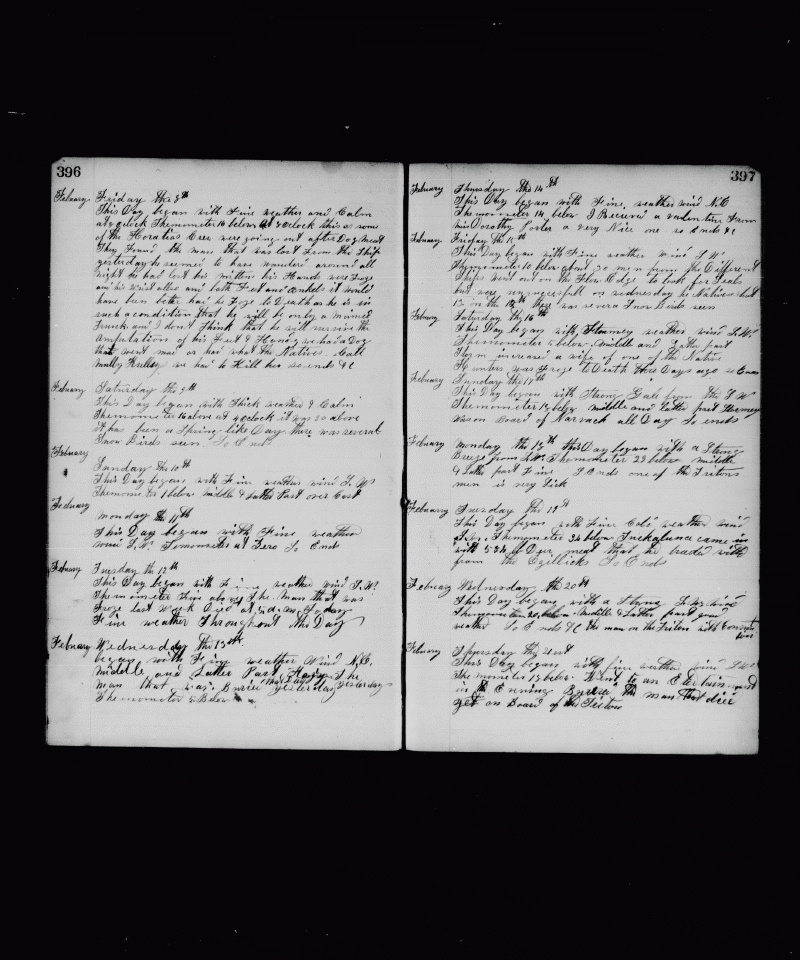 396
Febuary Friday the 8th
This Day began with Fine weather and Calm
at 4 oclock Themometer 16 below at 8 oclock this a some
of the Horatias Crew were going out after Dog meat
They Found the man that was lost From the Ship
yesterday he seemed to have wanderd around all
night he had lost his mittins his Hands were Froze
and his wrist allso and both Feet and Ankels it would
have been better had he Froze to Death as he is in
such a condition that he will be only a maimed
Trunk and I dont Think that he will survive the
Ampatation of his Feet & Hands we had a Dog
that went mad or had what the Natives Call
we had to Kill her so ends &c
Febuary Saturday the 9th
This Day began with Thick weather & Calm
Themometer 16 above at 4 oclock it was 20 above
it has been a Spring like Day there was several
Snow Birds seen So Ends
Febuary
Sunday the 10th
This Day began with Fine weather wind S.W.
Themometer 1 below middle & latter Part over Cast
Febuary
monday the 11th
This Day began with Fine weather
wind S.W. Temometer at Zero So Ends
Febuary Tuesday th 12th
This Day began with Fine weather wind S.W.
Themometer Five above The man that was
Froze last week Died at 5 a.m. To day
Fine weather Throughout the Day
Febuary Wednesday the 13th
began with Fine weather Wind N.E.
middle and Latter Part The
man that was Buried yesterday
Themometor 5 Below
397
Febuary Thursday the 14th
This Day began with Fine weather wind N.E
Themometer 14 below I Received a valentine From
miss Dorothy Porter a very Nice one so Ends &c
Febuary Friday the 15th
This Day began with Fine weather wind S.W
Themometer 10 below about 30 men from the Different
Ships went out on the Flow Edge to look for Seals
but were unsuccessfull on wednesday the Natives shot
13 in the there was severl Snow Birds seen
Febuary Saturday the 16th
This Day began with Stormey weather wind S.W.
Themometer 5 below middle and Latter part
Storm increased a wife of one of the Native
Hunters was Froze to Death three Days ago so Ends
Febuary Sunday the 17th
This Day began with Strong Gale from the S.W
Themometer 15 below middle and Latter part Stormey
was on Board of Narvarch all Day So ends
Febuary monday the 18th this Day began with a Strong
Breeze from S.W. Themometer 28 below middle
& Latter part Fine So Ends one of the Tritons
men is very Sick
Febuary Tuesday the 19th
This Day began with Fine Cold weather wind
Themometer 34 below came in
with 534 lb Deer meat that he traded with
from the So Ends
Febuary Wednesday the 20th
This Day began with a Strong S.W. wind
Themometer 20 below middle & Latter part good
weather So Ends &c the man on the Triton with
Febuary Thursday the 21st
This Day began with fine weather wind S.W.
Themometer 15 below Went to an Entertainment
in the Evening Buried the man that died
yst on Board of the Triton